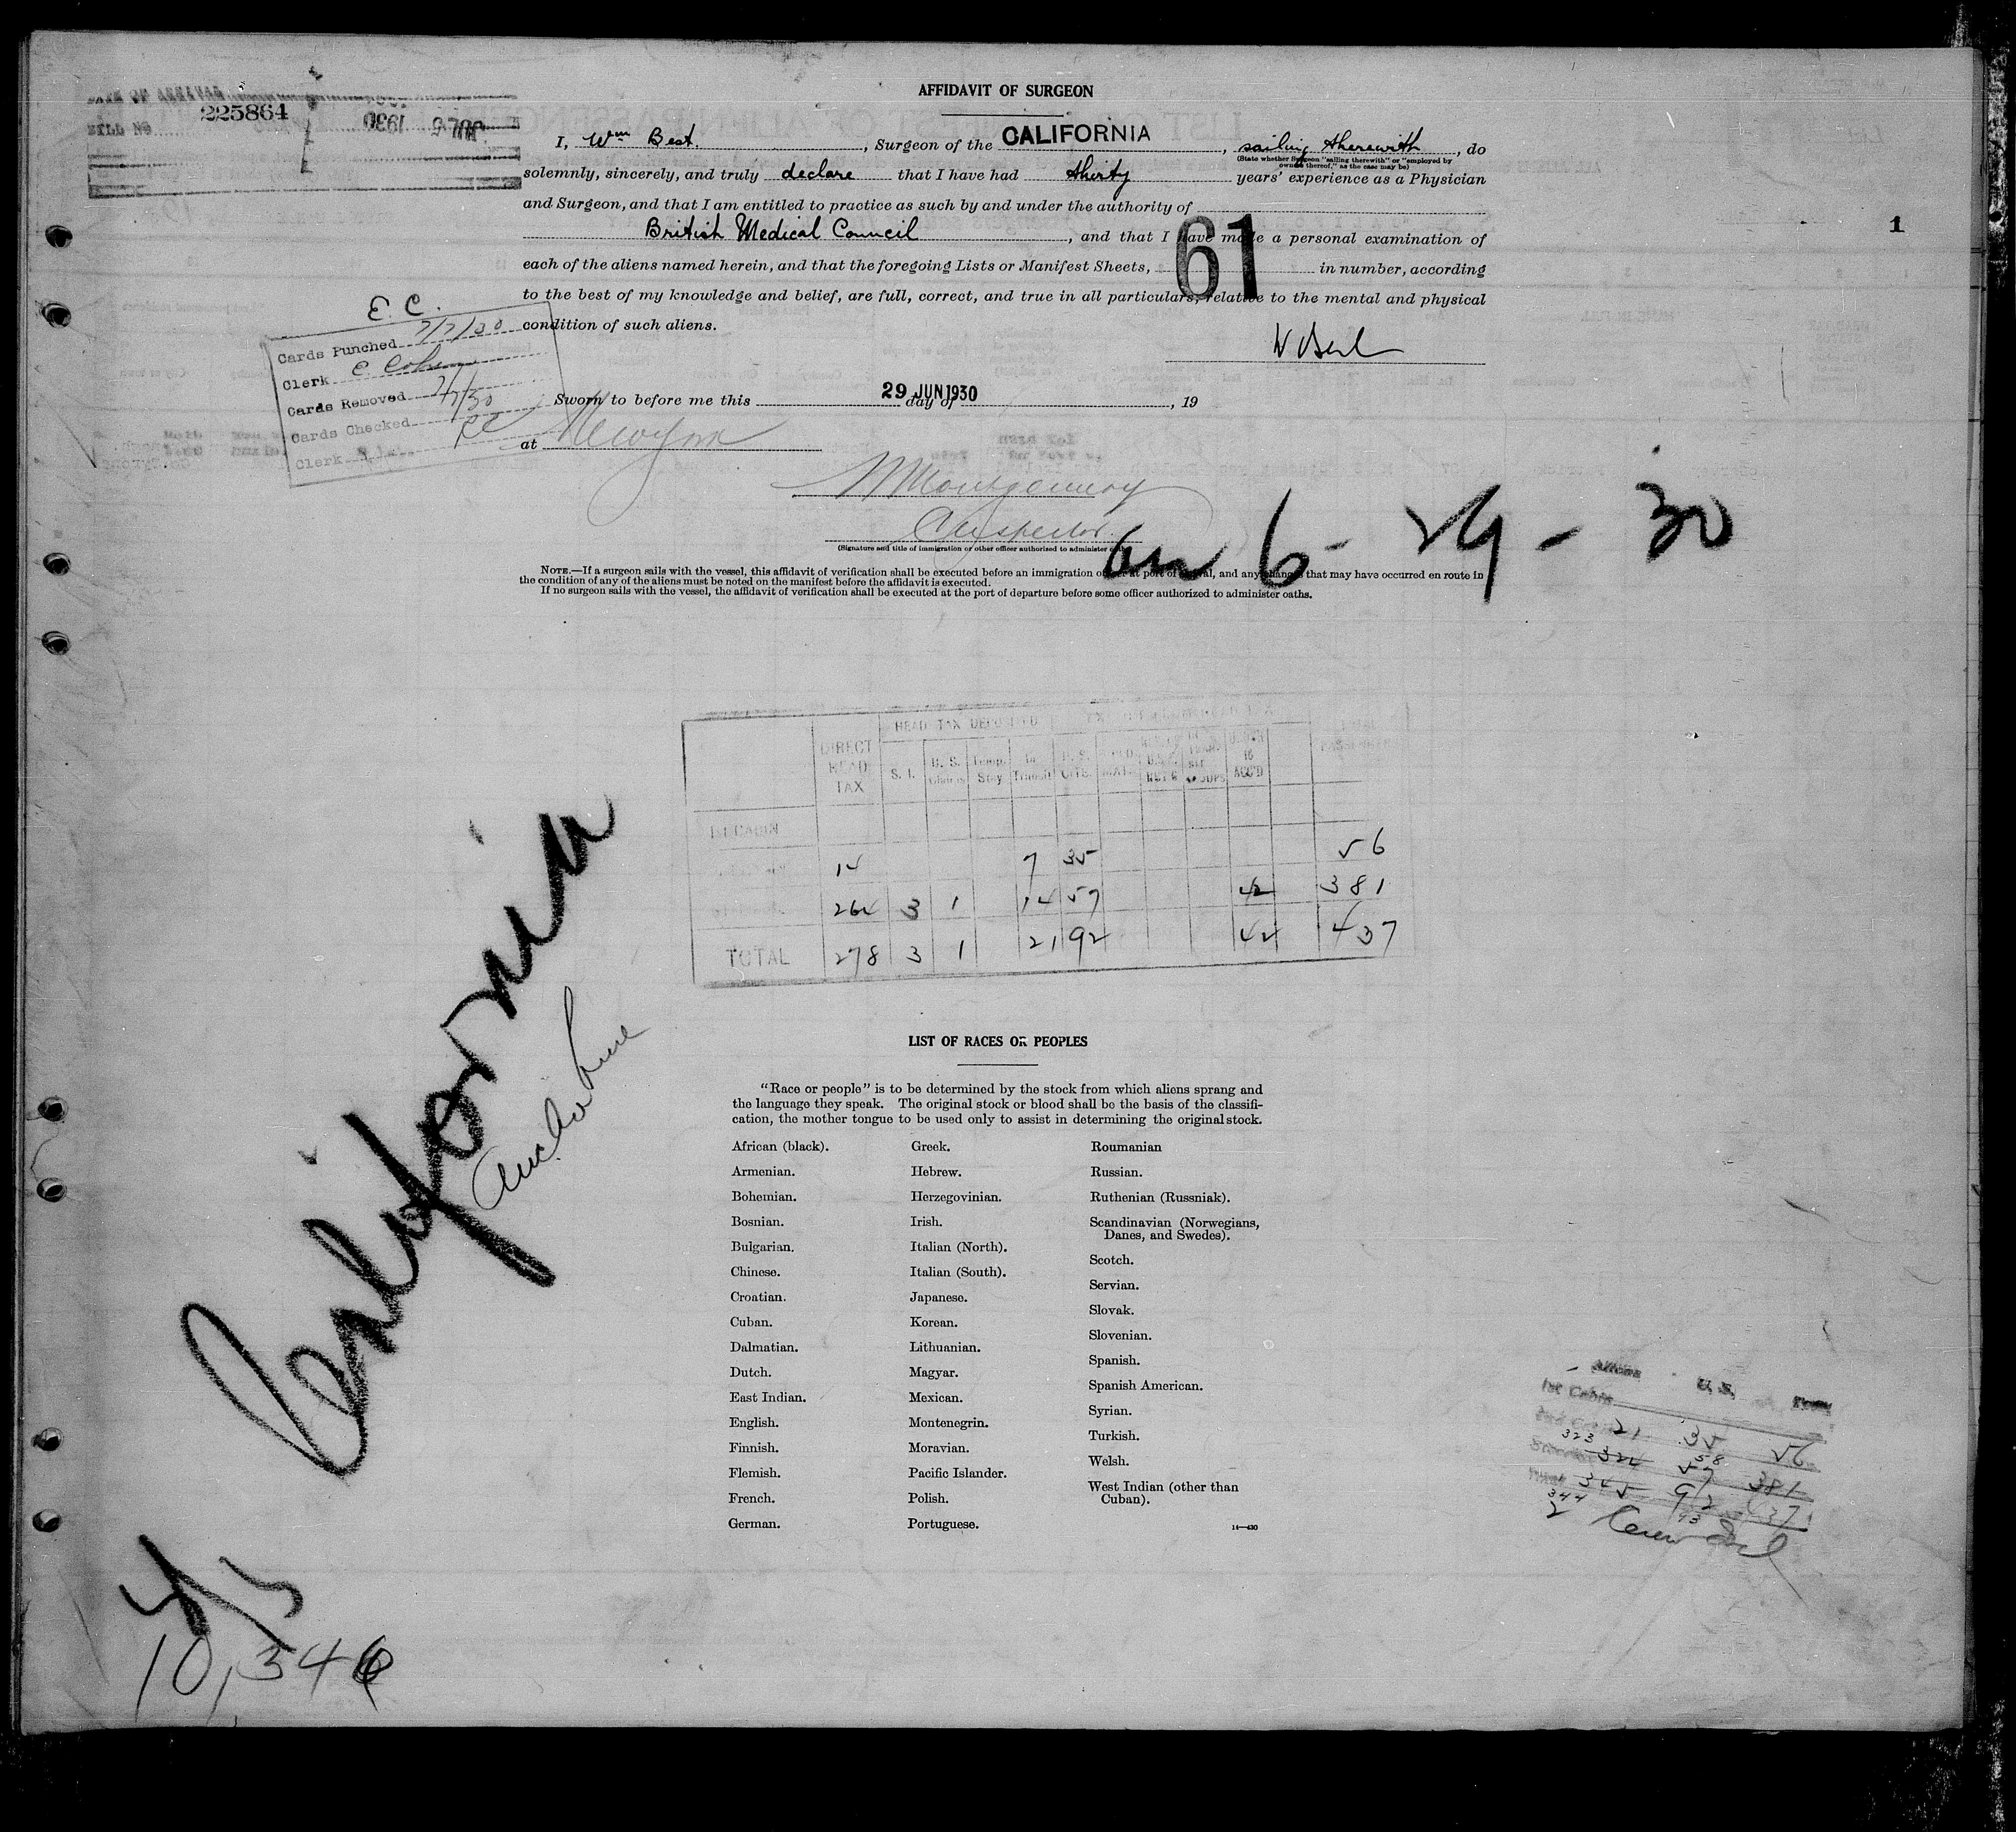 AFFIDAVIT OF SURGEON
BILL NO 225864
JUL 5 1930
I, Wm Best. , Surgeon of the CALIFORNIA , sailing therewith , do
(State whether Surgeon "sailing therewith" or "employed by
owners thereof," as the case may be)
solemnly, sincerely, and truly declare that I have had thirty years' experience as a Physician
and Surgeon, and that I am entitled to practice as such by and under the authority of
British Medical Council , and that I have made a personal examination of
each of the aliens named herein, and that the foregoing Lists or Manifest Sheets, 61 in number, according
to the best of my knowledge and belief, are full, correct, and true in all particulars, relative to the mental and physical
condition of such aliens.
1
W Best
E. C.
Cards Punched 7/7/30
Clerk E. Cohen
Cards Removed 7/7/30
Cards Checked
Clerk
Sworn to before me this 29 JUN 1930 day of , 19
at New York
Montgomery
Inspector
(Signature and title of immigration or other officer authorized to administer
6-29-30
NOTE.—If a surgeon sails with the vessel, this affidavit of verification shall be executed before an immigration officer at port of arrival, and any changes that may have occurred en route in
the condition of any of the aliens must be noted on the manifest before the affidavit is executed.
If no surgeon sails with the vessel, the affidavit of verification shall be executed at the port of departure before some officer authorized to administer oaths.
HEAD TAX DEPOSITED
DIRECT HEAD TAX S. I. U. S. Temp. Stay In Transit U. S. CITS. UNDER 16 ACC'D
1ST CABIN
14 7 35 56
264 3 1 14 57 42 381
TOTAL 278 3 1 21 92 42 437
California
Anchor Line
LIST OF RACES OR PEOPLES
"Race or people" is to be determined by the stock from which aliens sprang and
the language they speak. The original stock or blood shall be the basis of the classifi-
cation, the mother tongue to be used only to assist in determining the original stock.
African (black). Greek. Roumanian
Armenian. Hebrew. Russian.
Bohemian. Herzegovinian. Ruthenian (Russniak).
Bosnian. Irish. Scandinavian (Norwegians,
Danes, and Swedes).
Bulgarian. Italian (North). Scotch.
Chinese. Italian (South). Servian.
Croatian. Japanese. Slovak.
Cuban. Korean. Slovenian.
Dalmatian. Lithuanian. Spanish.
Dutch. Magyar. Spanish American.
East Indian. Mexican. Syrian.
English. Montenegrin. Turkish.
Finnish. Moravian. Welsh.
Flemish. Pacific Islander. West Indian (other than
Cuban).
French. Polish.
German. Portuguese.
14—430
Aliens U. S. Total
1st Cabin
21 35 56
323 324 58 57 381
344 345 92 93 437
2
10,346